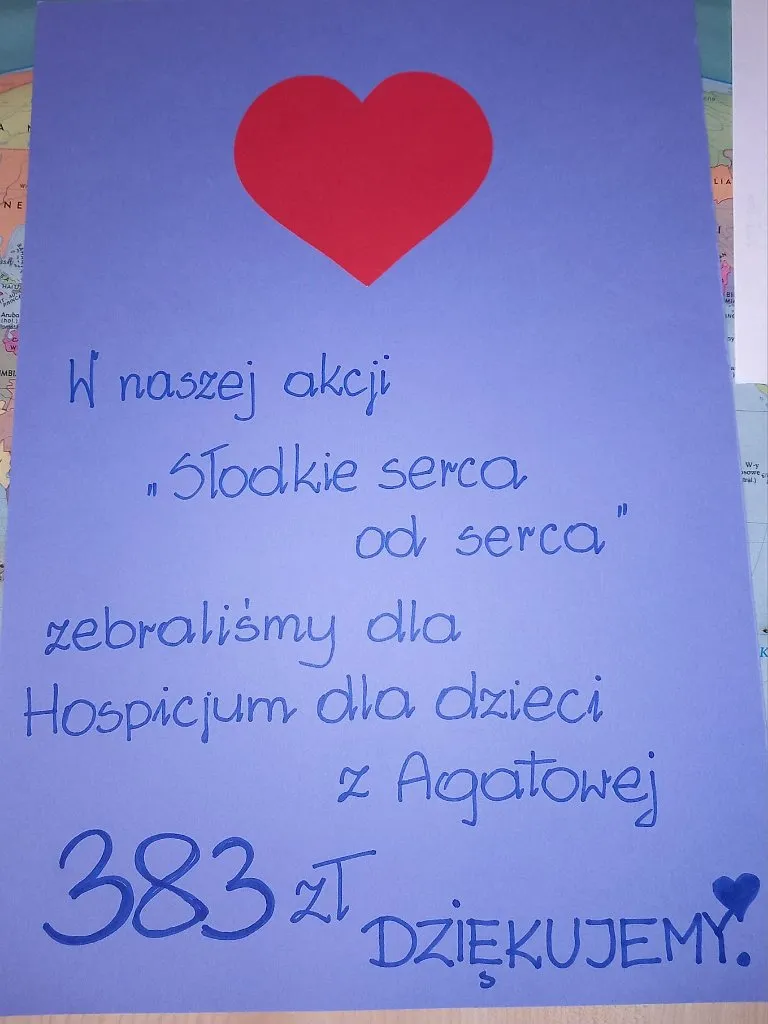 W naszej akcji
„Słodkie serca
od serca"
zebraliśmy dla
Hospicjum dla dzieci
z Agatowej
383 zł
DZIĘKUJEMY.